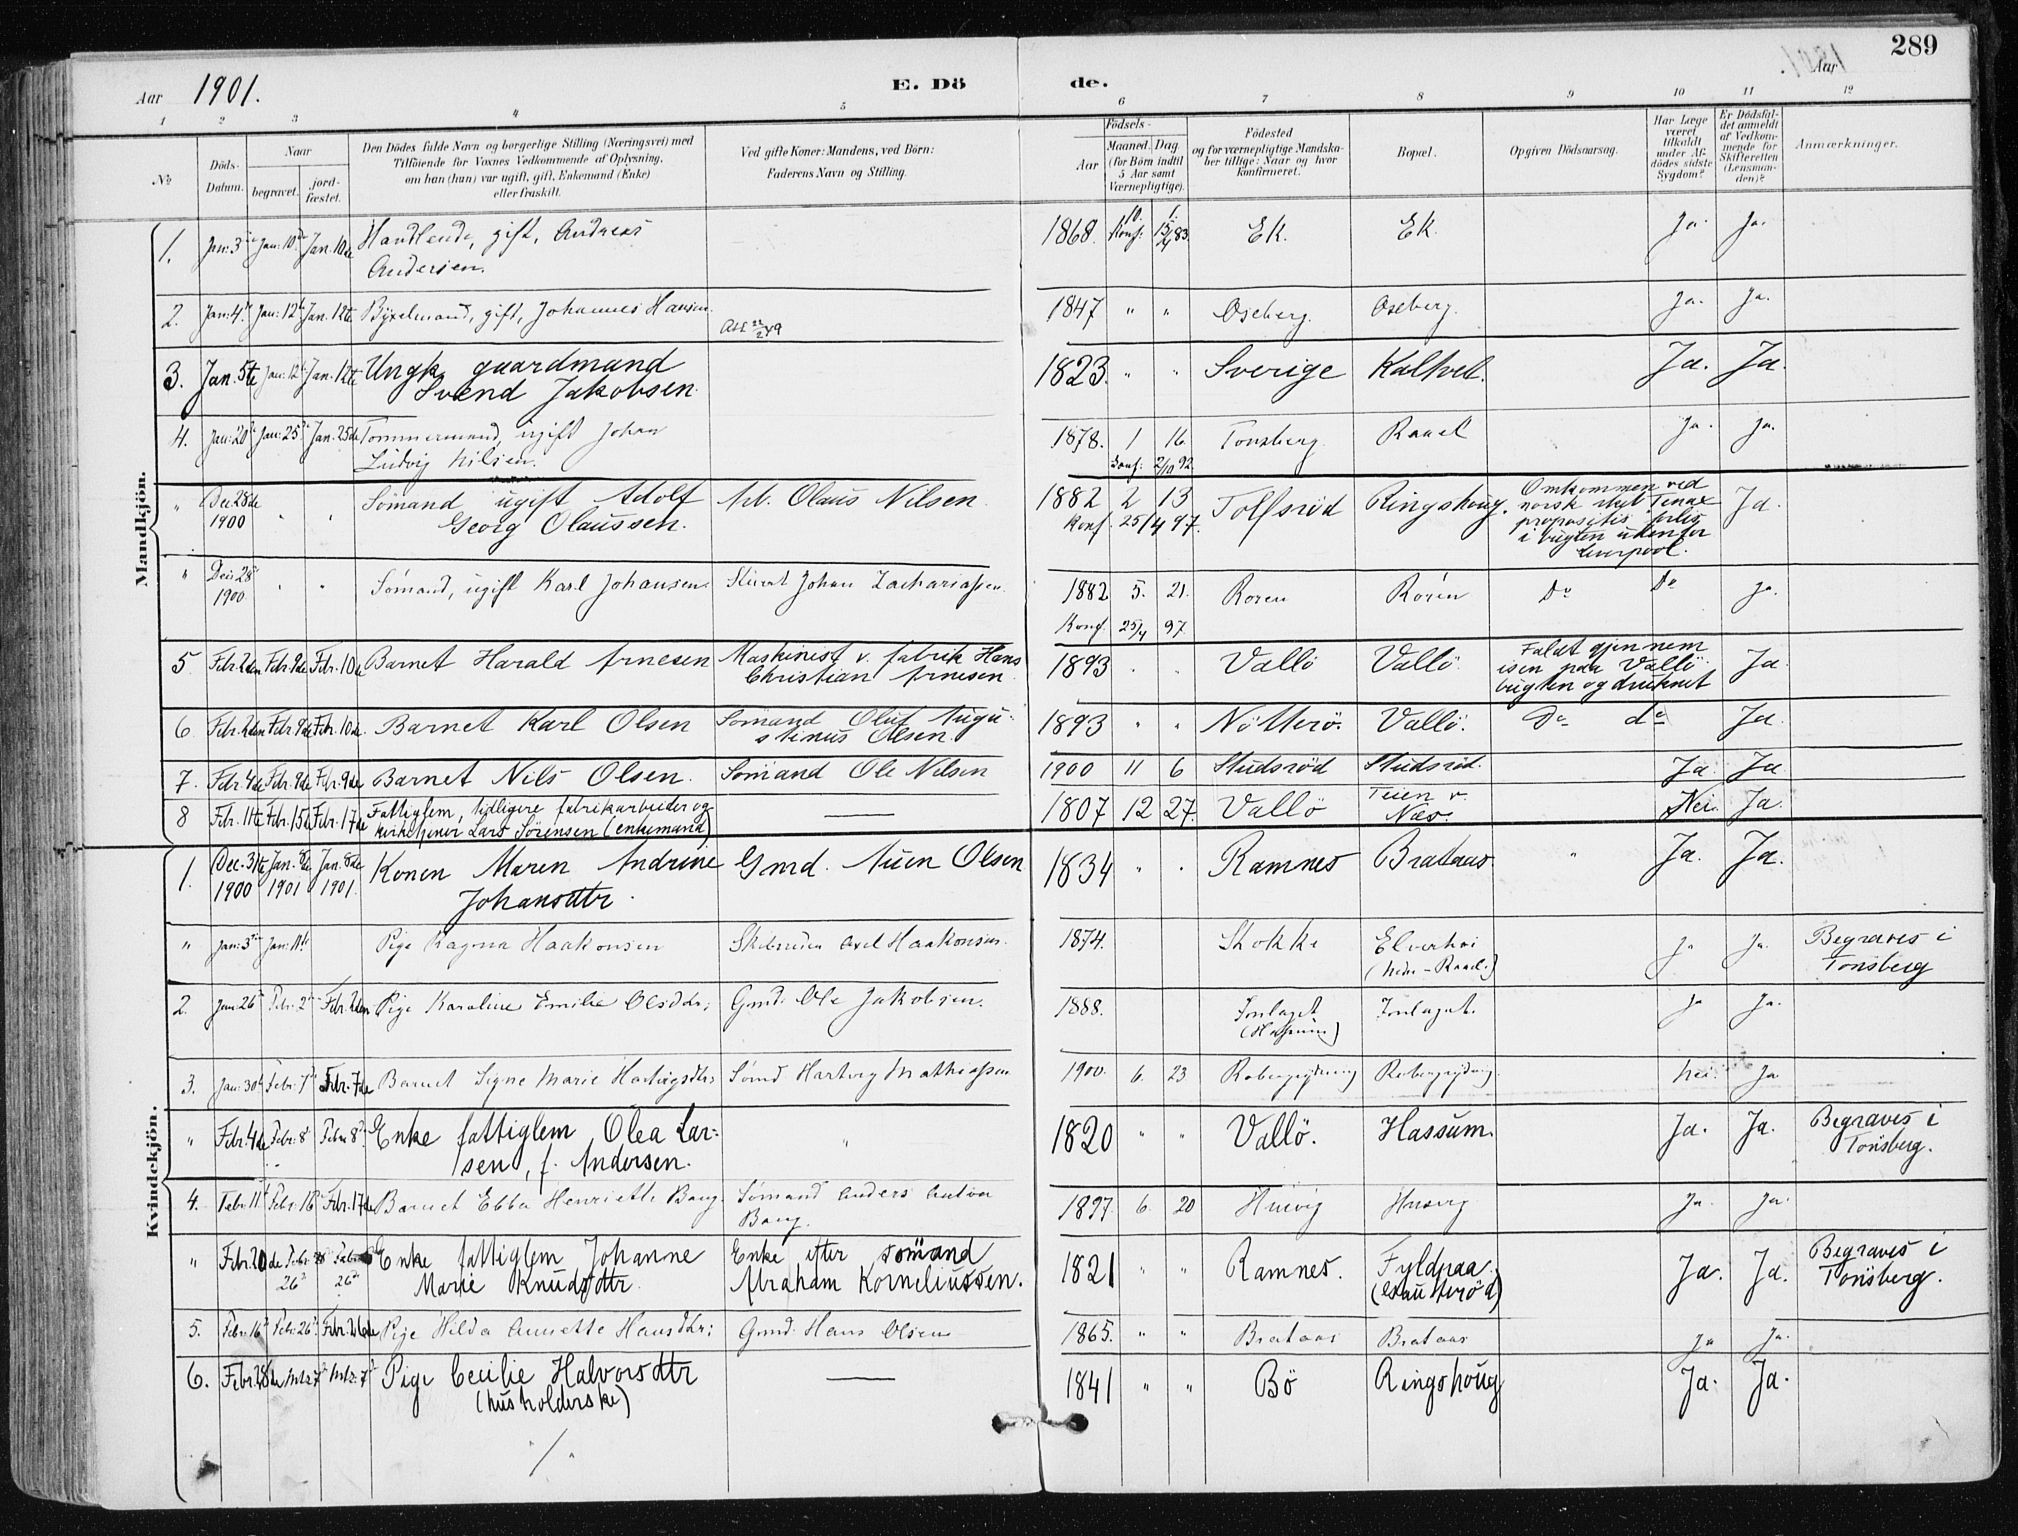 289
Aar 1901. E. Dö de. Aar
1 2 3 4 5 6 7 8 9 10 11 12
No
Döds-Datum.
Naar
begravet.
jord-fæstet.
Den Dödes fulde Navn og borgerlige Stilling (Næringsvei) med
Tilföiende for Voxnes Vedkommende af Oplysning,
om han (hun) var ugift, gift, Enkemand (Enke)
eller fraskilt.
Ved gifte Koner: Mandens, ved Börn:
Faderens Navn og Stilling.
Födsels-
Aar
Maaned. Dag
(for Börn indtil
5 Aar samt
Værnepligtige).
Födested
og for værnepligtige Mandska-
ber tillige: Naar og hvor
konfirmeret.
Bopæl.
Opgiven Dödsaarsag.
Har Læge
været
tilkaldt
under Af-
dödes sidste
Sygdom?
Er Dödsfal-
det anmeldt
af Vedkom-
mende for
Skifteretten
(Lensman-
den)?
Anmærkninger.
Mandkjön.
1. Jan. 3die Jan. 10de Jan. 10de Handlende, gift, Andreas 1868. 10. 1. Ek. Ek. Ja. Ja.
Andersen. Konf. 15/4 83.
2. Jan: 4. Jan: 12te Jan. 12te Byxelmand, gift, Johannes Hansen. 1847 " " Oseberg. Oseberg. Ja. Ja.
3. Jan. 5te Jan: 12te Jan. 12te Ungk. gaardmand 1823. " " Sverige Kalhvet. Ja. Ja.
Svend Jakobsen.
4. Jan: 20 Jan: 25 Jan. 25de Tømmermand, ugift Johan 1878. 1 16. Tønsberg. Raael Ja. Ja.
Ludvig Nilsen. Konf: 2/10 92.
" Dec 28de 1900 " " Sømand ugift Adolf Arb. Olaus Nilsen. 1882 2 13 Tolfsrød Ringshoug. Omkommen ved Ja.
Georg Olaussen. Konf. 25/4 97. norsk skib Tenax
propositis forlis
i bugten udenfor
Liverpool.
" Dec. 28 1900. " " Sømand, ugift Karl Johansen. Stuert Johan Zachariassen. 1882 5. 21. Roren Rören Do Do Ja.
Konf. 25/4 97
5 Febr. 2den Febr. 9de Febr. 10de Barnet Harald Arnesen Maskinist v. fabrik Hans 1893 " " Vallö Vallö. Faldt gjennem Ja.
Christian Arnesen. isen paa Vallö
bugten og druknet
6. Febr. 2den Febr. 9de Febr. 10de. Barnet Karl Olsen Sømand Oluf Augu- 1893 " " Nötterö. Vallö. Do do Ja.
stinus Olsen.
7. Febr. 4de Febr. 9de Febr. 9de Barnet Nils Olsen. Sømand Ole Nilsen 1900 11 6 Studsrød Studsrød. Ja. Ja
8 Febr. 11te Febr. 15de Febr. 17de Fattiglem, tidligere fabrikarbeider og 1807 12 27. Vallö Teien v. Nei. Ja.
kirketjener Lars Sørensen (enkemand) Næs.
Kvindekjön.
1. Dec. 31te 1900 Jan. 8de 1901 Jan. 8de 1901. Konen Maren Andrine Gmd. Auen Olsen 1834 " " Ramnes Brataas. " Ja. Ja.
Johansdtr.
" Jan: 3die Jan: 11te Pige Ragna Haakonsen Axel Haakonsen. 1874. Stokke Elverhøi Ja Ja. Begraves i
(Nedre-Raael.) Tønsberg
2. Jan: 26 Febr. 2 Febr. 2den Pige Karoline Emilie Olsdtr; Gmd. Ole Jakobsen. 1888. Ja Ja.
3. Jan: 30 Febr. 7 Febr. 7de Barnet Signe Marie Hartvigsdtr; Sømd Hartvig Mathiassen 1900. 6. 23. Robergrydning Robergrydning. Nei. Ja
" Febr. 4de Febr. 8 Febr. 8 Enke fattiglem Olea Lar- " 1820 " " Vallö. Hassum. Ja. Ja. Begraves i
sen, f. Andersen. Tönsberg.
4. Febr. 11 Febr. 16 Febr. 17de Barnet Ebba Henriette Bang. Sømand Anders Anton 1897. 6. 20 Husvig Husvig Ja. Ja.
Bang.
" Febr. 20de Febr. 26 Febr. 26 Enke fattiglem Johanne Enke efter sømand 1821 " " Ramnes. Fyldpaa. Ja. Ja. Begraves i
Marie Knudsdtr Abraham Korneliussen. Tönsberg.
5. Febr. 16 Febr. 26 Febr. 26de Pige Hilda Annette Hansdtr; Gmd. Hans Olsen 1865. " " Brataas Brataas Ja Ja.
6. Febr. 28de Mrz. 7 Mrz. 7 Pige Cecilie Halvorsdtr 1841 " " Bö Ringshoug Ja. Ja.
(husholderske)